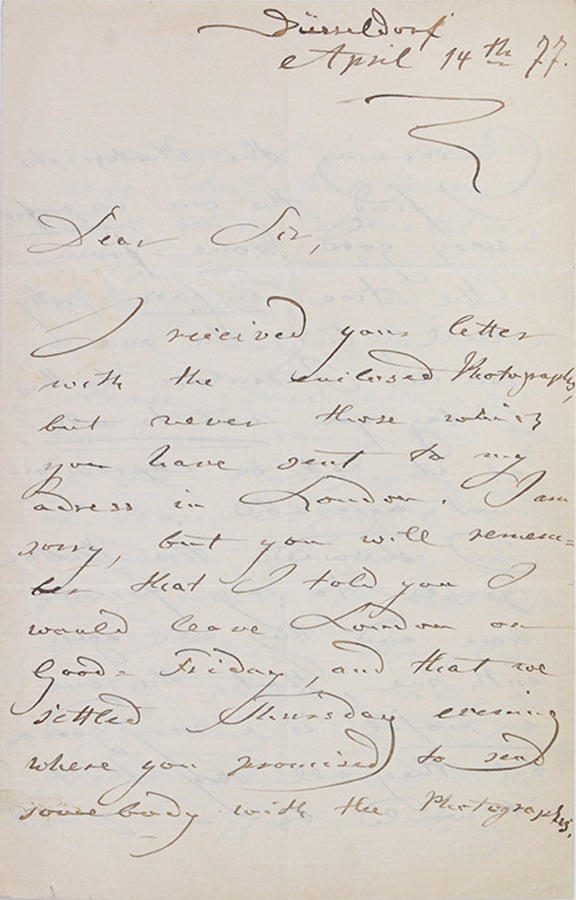 Düsseldorf
April 14th 77.
Dear Sir,
I received your letter
with the enclosed Photographs,
but never those which
you have sent to my
adress in London. I am
sorry, but you will remem=
ber that I told you I
would leave London on
Good= Friday, and that we
settled Thursday evening
where you promised to send
somebody with the Photographs.